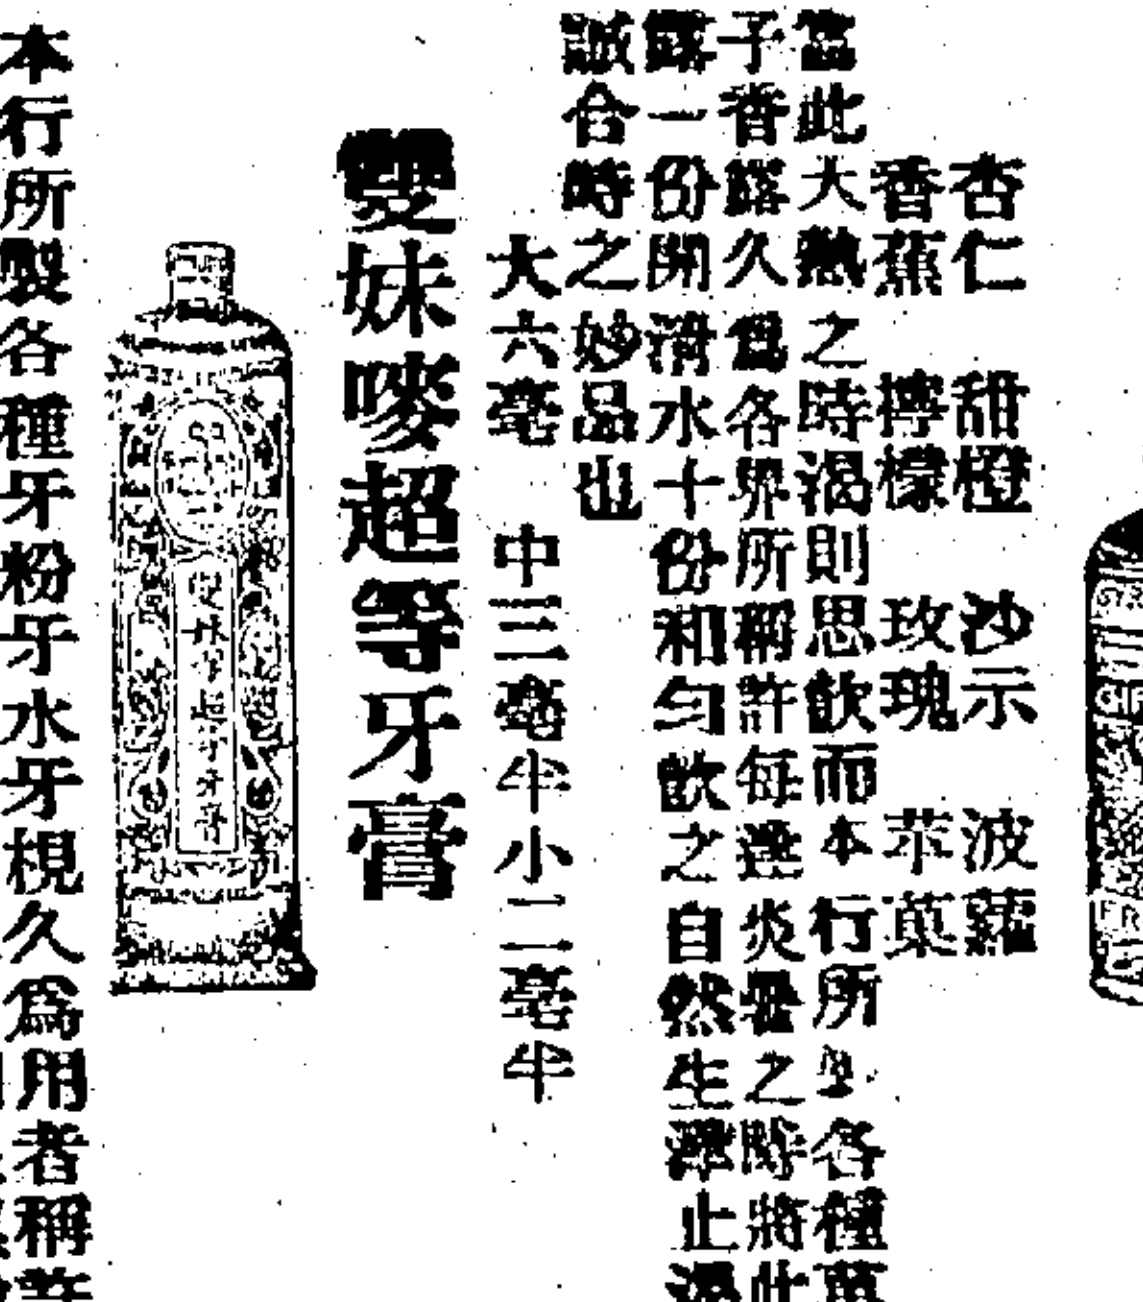 杏仁 甜橙 沙示 波蘿
香蕉 擰檬 玫瑰 苹菓
當此大熱之時渴則思飲而本行所製各種菓
子香露久爲各界所稱許每逢炎暑之時將此
露一份開淸水十份和勻飲之自然生津止渴
誠合時之妙品也
大六毫 中三毫半 小二毫半
雙妹嘜超等牙膏
本行所製各種牙粉牙水牙梘久爲用者稱許